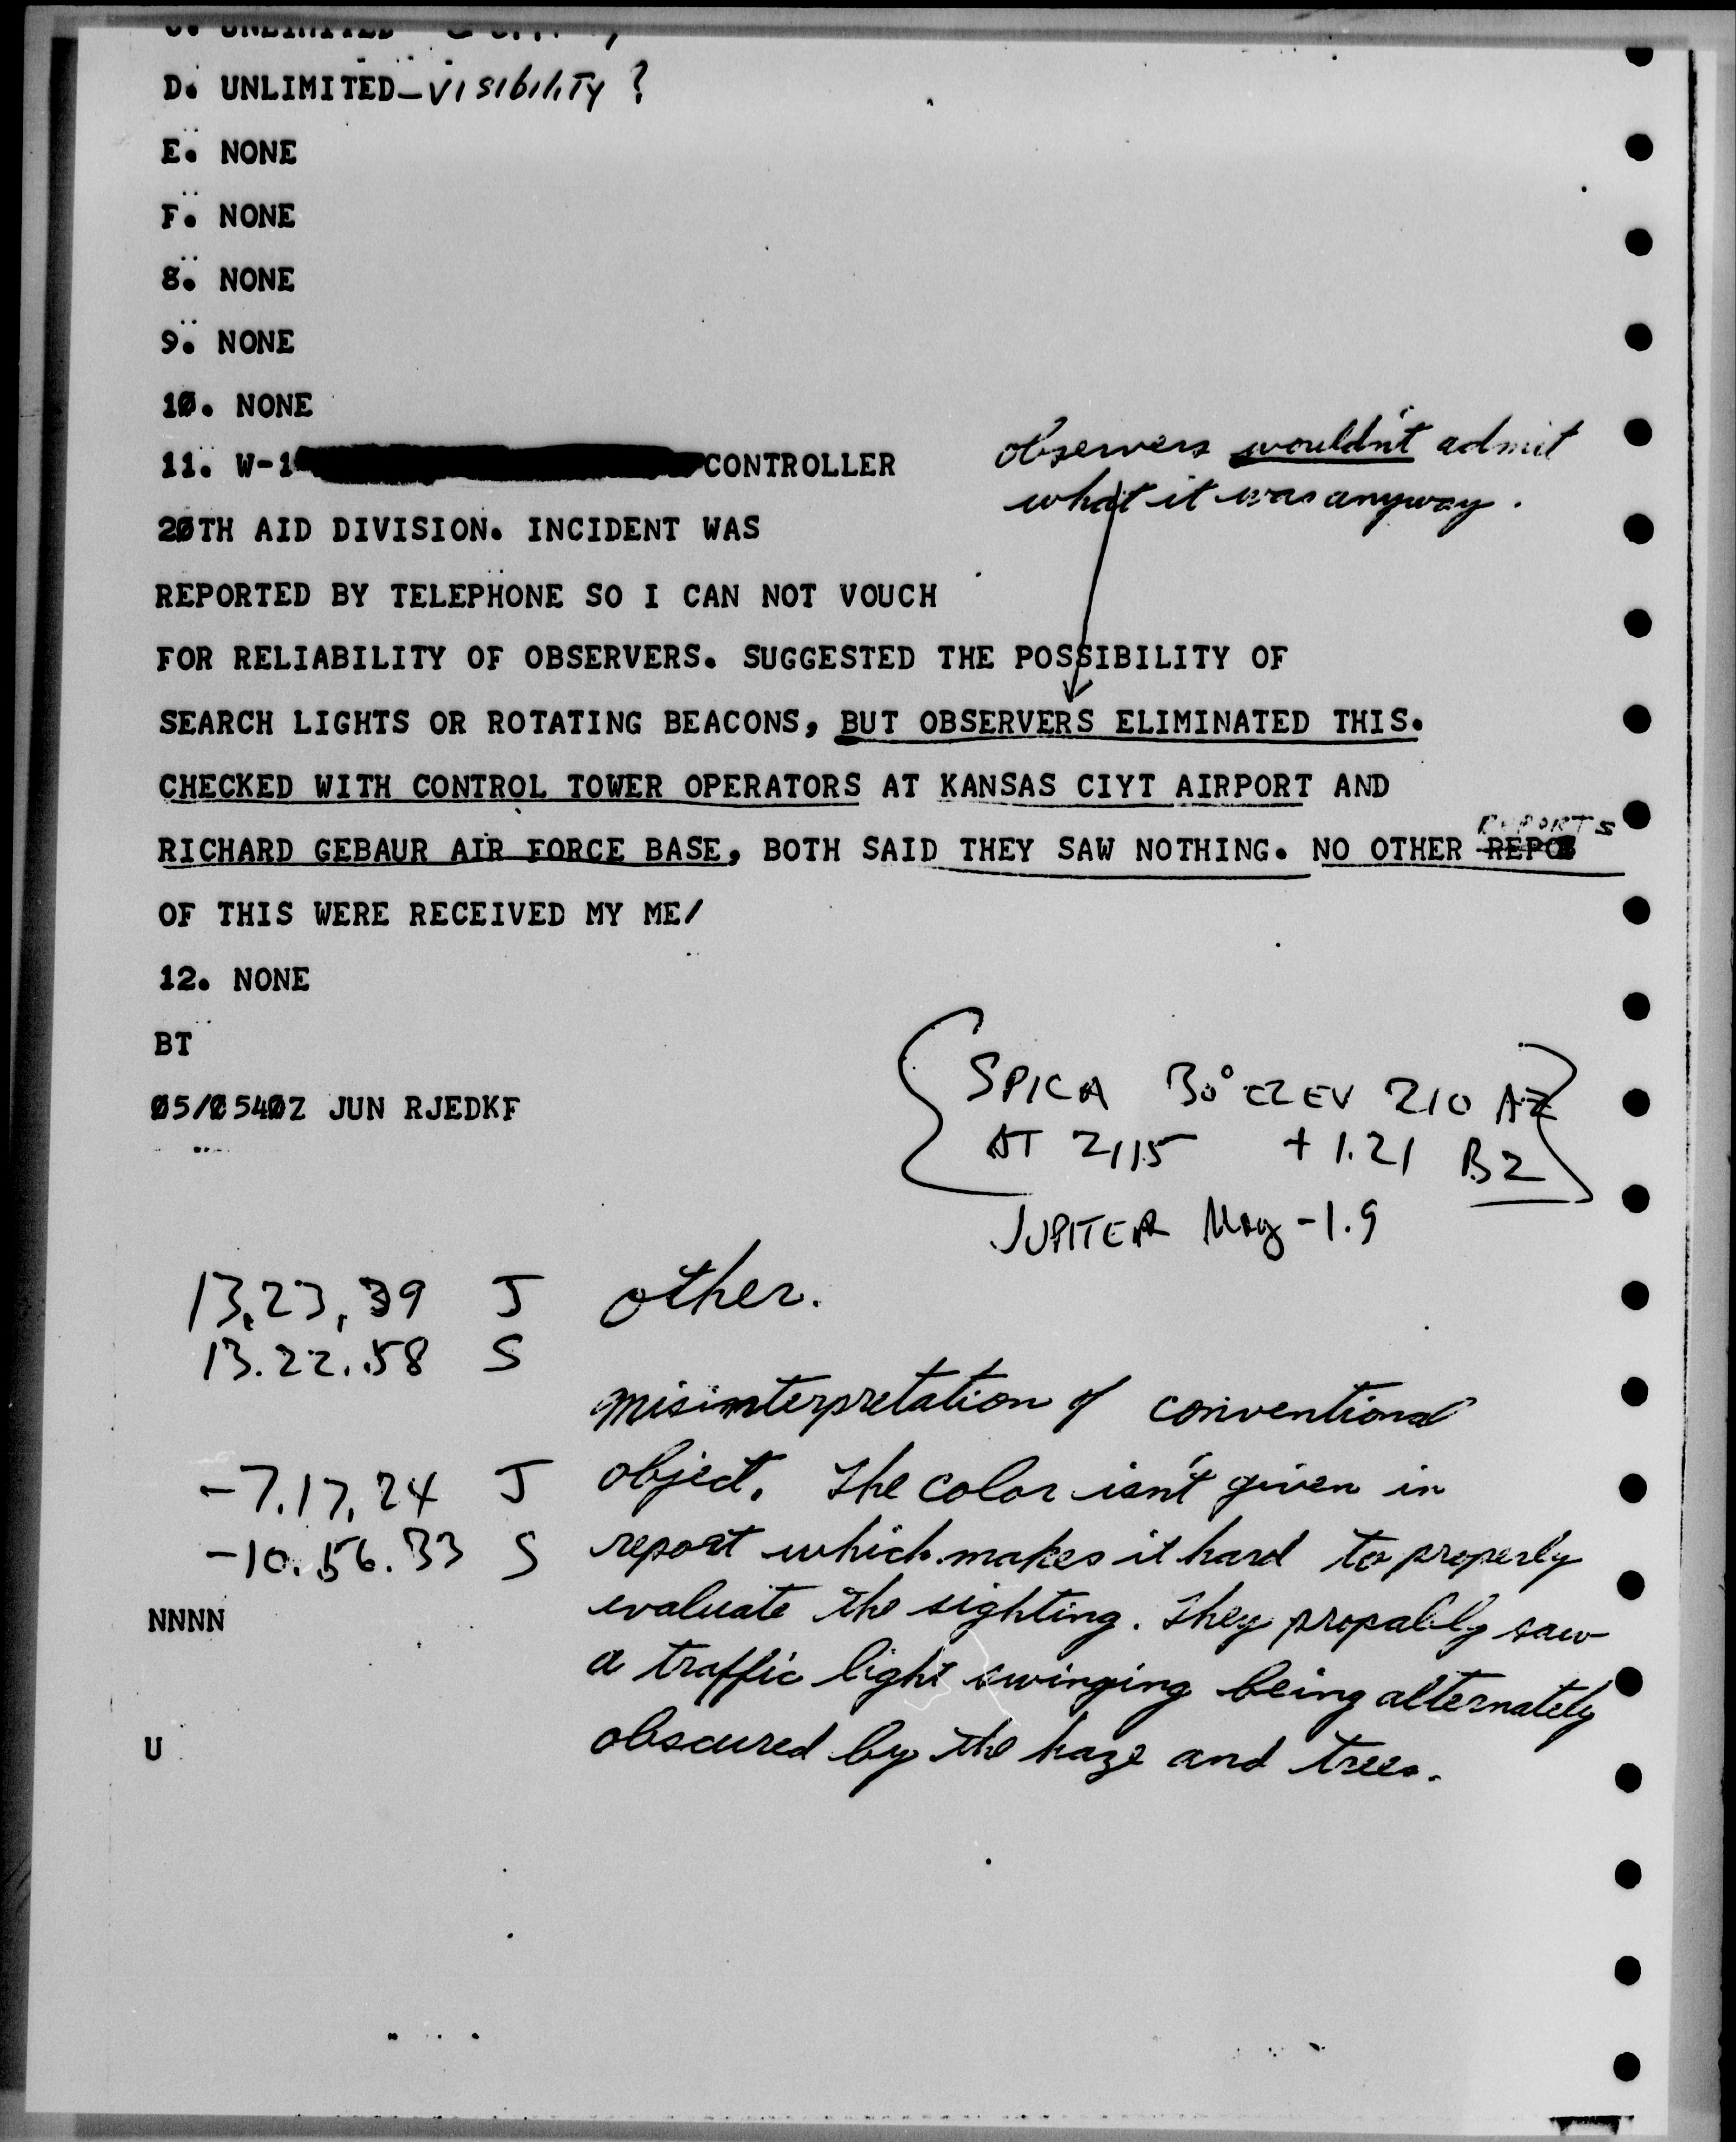 UNLIMITED
D. UNLIMITED - visibility ?
E. NONE
F. NONE
8. NONE
9. NONE
10. NONE
11. W-1 CONTROLLER
observers wouldn't admit
what it was anyway.
20TH AID DIVISION. INCIDENT WAS
REPORTED BY TELEPHONE SO I CAN NOT VOUCH
FOR RELIABILITY OF OBSERVERS. SUGGESTED THE POSSIBILITY OF
SEARCH LIGHTS OR ROTATING BEACONS, BUT OBSERVERS ELIMINATED THIS.
CHECKED WITH CONTROL TOWER OPERATORS AT KANSAS CIYT AIRPORT AND
REPORTS
RICHARD GEBAUR AIR FORCE BASE, BOTH SAID THEY SAW NOTHING. NO OTHER REPO
OF THIS WERE RECEIVED MY ME/
12. NONE
BT
05/0540Z JUN RJEDKF
SPICA 30° ELEV 210 AZ
AT 2115 + 1.21 B2
JUPITER Mag -1.9
13.23.39 J
13.22.58 S
-7.17.24 J
-10.56.33 S
other.
misinterpretation of conventional
object. The color isn't given in
report which makes it hard to properly
evaluate the sighting. They propably saw
a traffic light swinging being alternately
obscured by the haze and trees.
NNNN
U